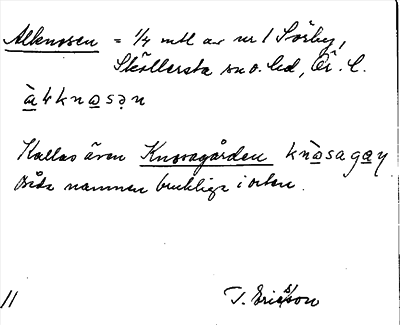 Alknosen = 1/4 mtl av nr 1 Sörby,
Sköllersta sn o. hd, Ör. l.
à4knasən
Kallas även Knosagården knàsagay
Båda namnen brukliga i orten.
11 T. Ericsson